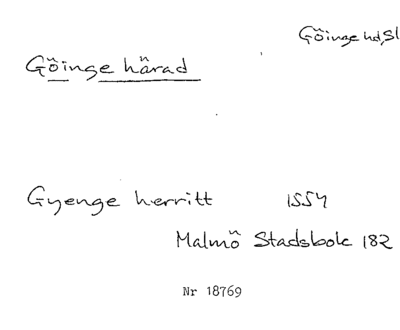 Göinge hd, Sl
Göinge härad
Gyenge herritt 1554
Malmö Stadsbok 182
Nr 18769